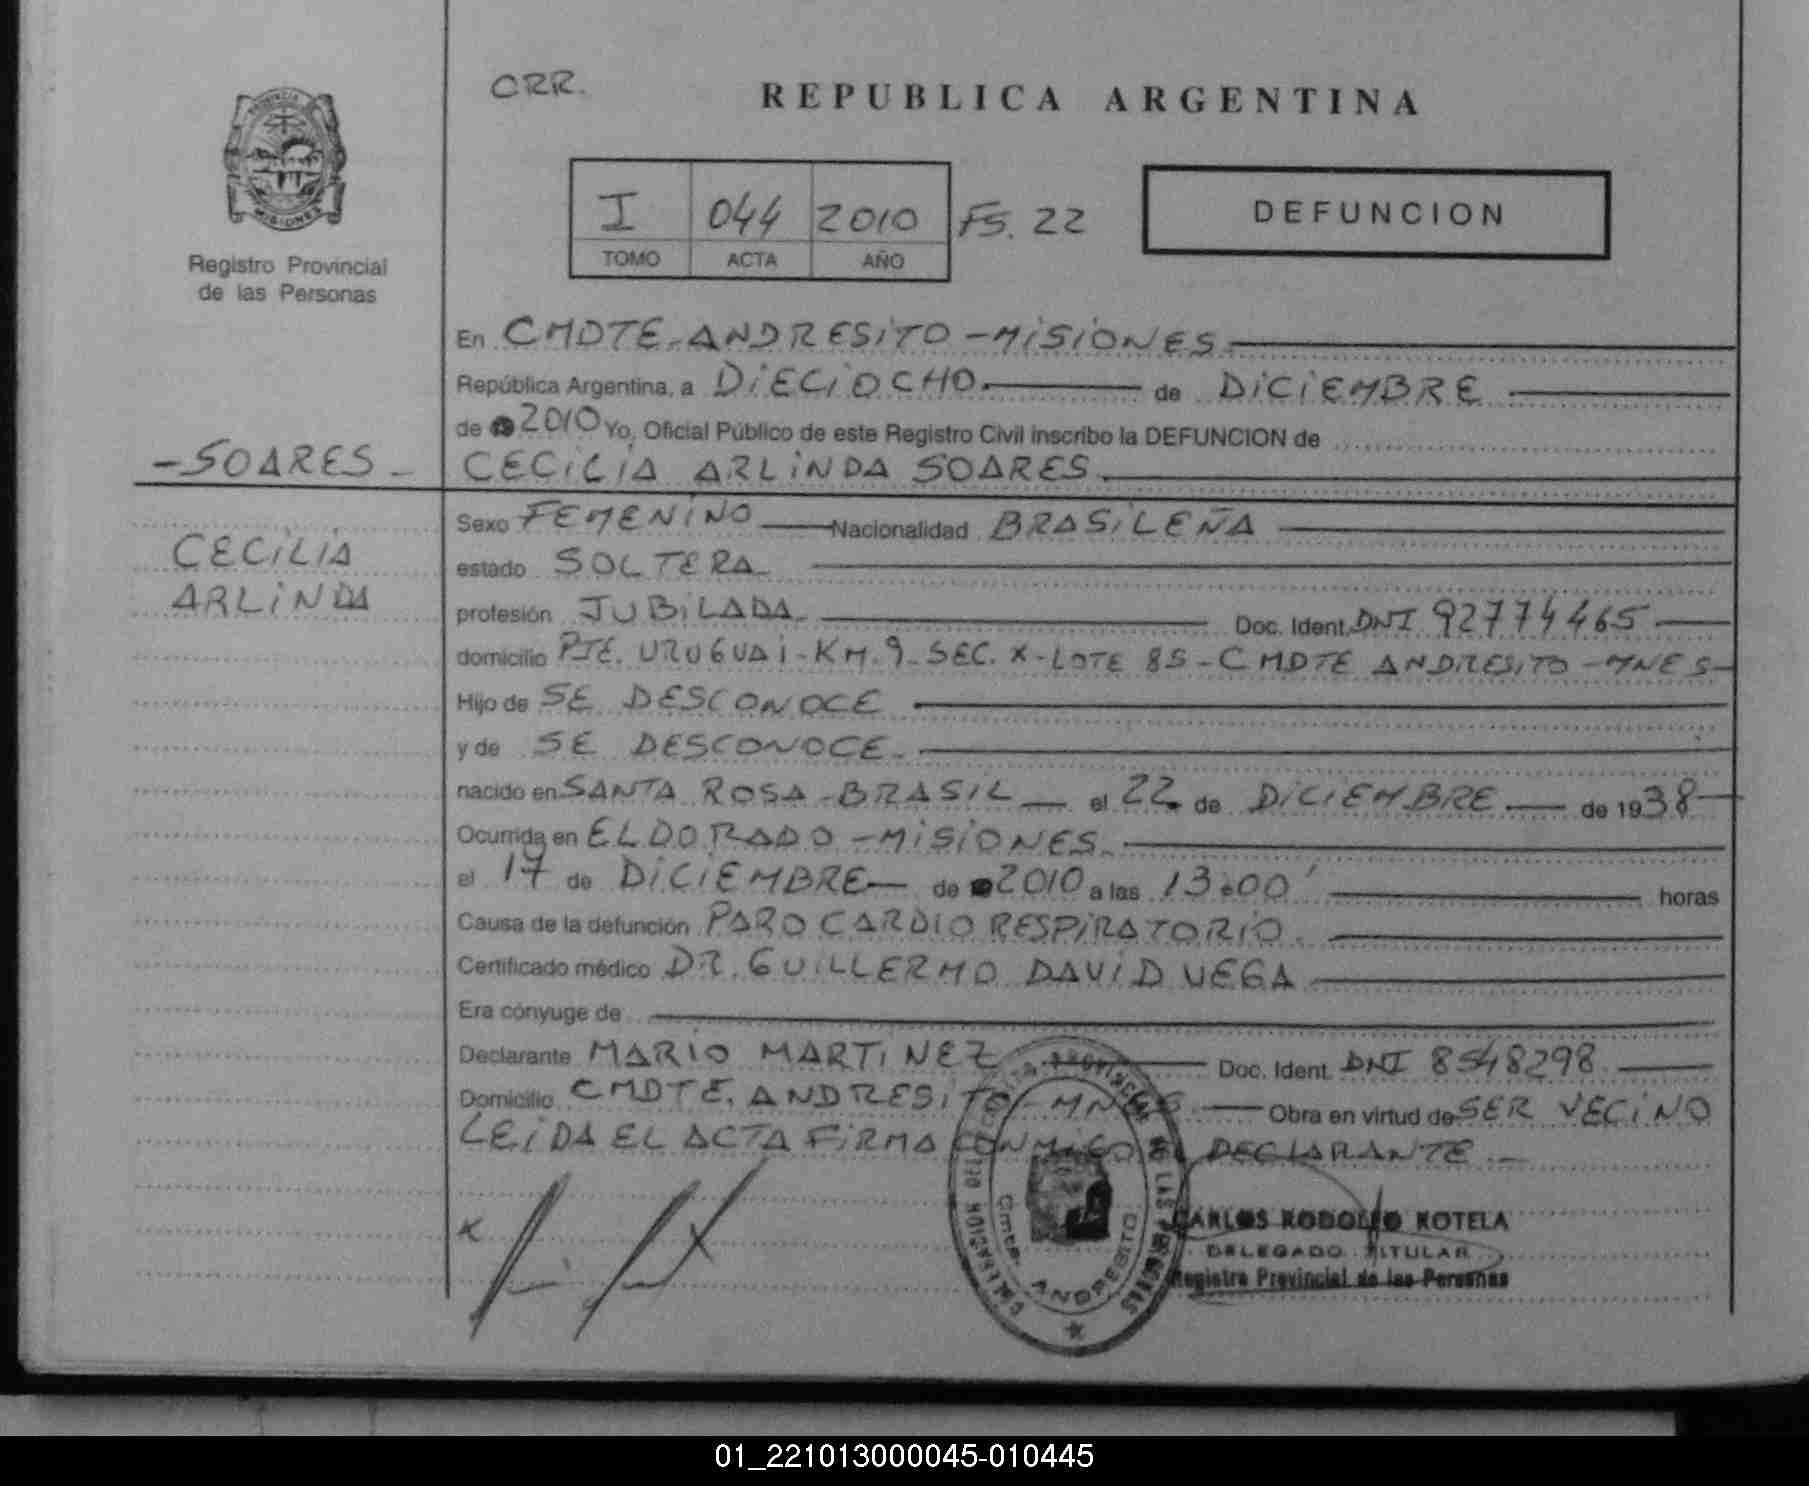 CRR.
REPUBLICA ARGENTINA
I 044 2010 FS. 22
TOMO ACTA AÑO
DEFUNCION
PROVINCIA
MISIONES
Registro Provincial
de las Personas
En CMDTE. ANDRESITO - MISIONES
República Argentina, a DIECIOCHO de DICIEMBRE
de 2010 Yo, Oficial Público de este Registro Civil inscribo la DEFUNCION de
- SOARES - CECILIA ARLINDA SOARES
Sexo FEMENINO Nacionalidad BRASILEÑA
CECILIA
estado SOLTERA
ARLINDA
profesión JUBILADA Doc. Ident. DNI 92774465
domicilio PTE. URUGUAI - KM. 9 - SEC. X - LOTE 85 - CMDTE ANDRESITO - MNES
Hijo de SE DESCONOCE
y de SE DESCONOCE
nacido en SANTA ROSA - BRASIL el 22 de DICIEMBRE de 1938
Ocurrida en ELDORADO - MISIONES
el 17 de DICIEMBRE de 2010 a las 13:00' horas
Causa de la defunción PARO CARDIO RESPIRATORIO.
Certificado médico DR. GUILLERMO DAVID VEGA
Era cónyuge de
Declarante MARIO MARTINEZ Doc. Ident. DNI 8548298
Domicilio CMDTE. ANDRESITO - MNES Obra en virtud de SER VECINO
LEIDA EL ACTA FIRMA CONMIGO EL DECLARANTE
X
CARLOS RODOLFO KOTELA
DELEGADO TITULAR
Registro Provincial de las Personas
DELEGACION REGISTRO PROVINCIAL DE LAS PERSONAS
Cmte. ANDRESITO
01_221013000045-010445